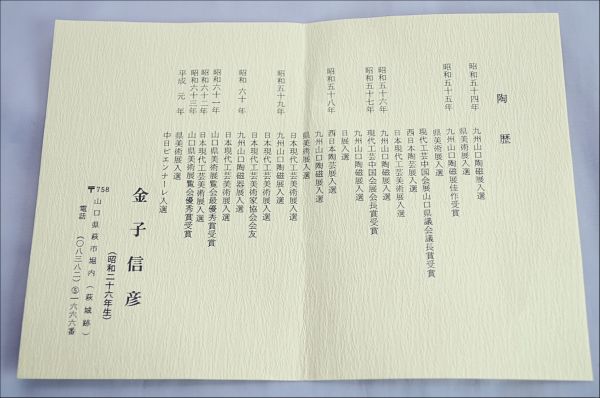 陶歴
昭和五十四年 九州山口陶磁展入選
県美術展入選
昭和五十五年 九州山口陶磁展佳作受賞
県美術展入選
現代工芸中国会展山口県議会議長受賞
西日本陶芸展入選
日本現代工芸美術展入選
昭和五十六年 九州山口陶磁展入選
昭和五十七年 現代工芸中国会展会長賞受賞
九州山口陶磁展入選
日展入選
昭和五十八年 西日本陶芸展入選
九州山口陶磁展入選
県美術展入選
日本現代工芸美術展入選
昭和五十九年 九州山口陶磁展入選
日本現代工芸美術展入選
日本現代工芸美術家協会会友
昭和六十年 九州山口陶磁器展入選
日本現代工芸美術展入選
昭和六十一年 山口県美術展覧会最優秀賞受賞
昭和六十二年 日本現代工芸美術展入選
昭和六十三年 山口県美術展覧会優秀賞受賞
平成元年 県美術展入選
中日ビエンナーレ入選
金子信彦
(昭和二十六年生)
〒758 山口県萩市堀内(萩城跡)
電話 (〇八三八二)⑤一六六六番